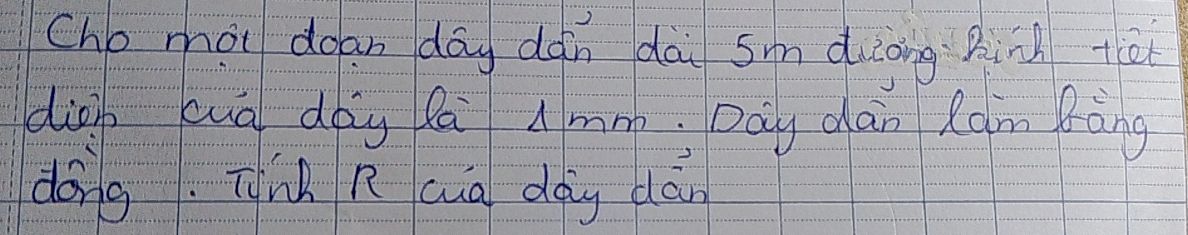 Cho một đoạn dây dẫn dài 5m đường kính tiết
diện của dây là 1mm. Dây dẫn làm bằng
đồng. Tính R của dây dẫn